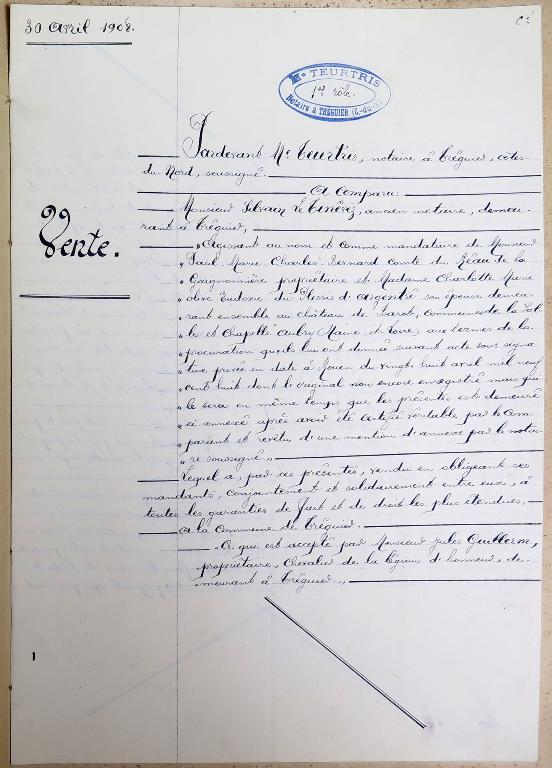 30 Avril 1908.
Me TEURTRIS
1er rôle.
Notaire à TRÉGUIER (C.-du-N.)
Vente.
Pardevant Me Teurtris, notaire à Tréguier, Côtes-
du Nord, soussigné.
A Comparu:
Monsieur Le ancien notaire, demeu-
rant à Tréguier,
"Agissant au nom et comme mandataire de Monsieur
"Paul Marie Charles Bernard comte du Réau de la
"Gaignonnière propriétaire et Madame Charlotte Marie
" Eudoxie du Plessis d'Argentré son épouse demeu-
"rant ensemble au château de Barot, communes de la Sal-
"le et Chapelle Aubry Maine et Loire; aux termes de la
"procuration qu'ils lui ont donnée suivant acte sous signa-
"ture privée en date à du vingt huit avril mil neuf
"cent huit dont le original non encore enregistré mais qui
"le sera en même temps que les présentes est demeuré
"ci annexé après avoir été certifié véritable par le com-
"parant et revêtu d'une mention d'annexe par le notai-
"re soussigné"
Lequel a, par ces présentes, vendu en obligeant ses
mandants, conjointement et solidairement entre eux, à
toutes les garanties de fait et de droit les plus étendues,
A la Commune de Tréguier.
"Ce qui est accepté par Monsieur Jules Guillerm,
"propriétaire, Chevalier de la Légion d'honneur, de-
"meurant à Tréguier,
1